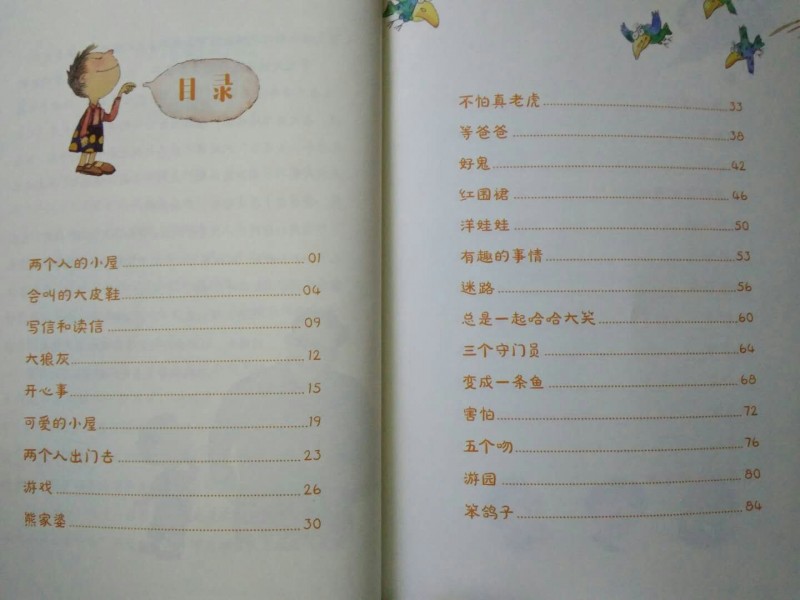 目录
两个人的小屋 01
会叫的大皮鞋 04
写信和读信 09
大狼灰 12
开心事 15
可爱的小屋 19
两个人出门去 23
游戏 26
熊家婆 30
不怕真老虎 33
等爸爸 38
好鬼 42
红围裙 46
洋娃娃 50
有趣的事情 53
迷路 56
总是一起哈哈大笑 60
三个守门员 64
变成一条鱼 68
害怕 72
五个吻 76
游园 80
笨鸽子 84